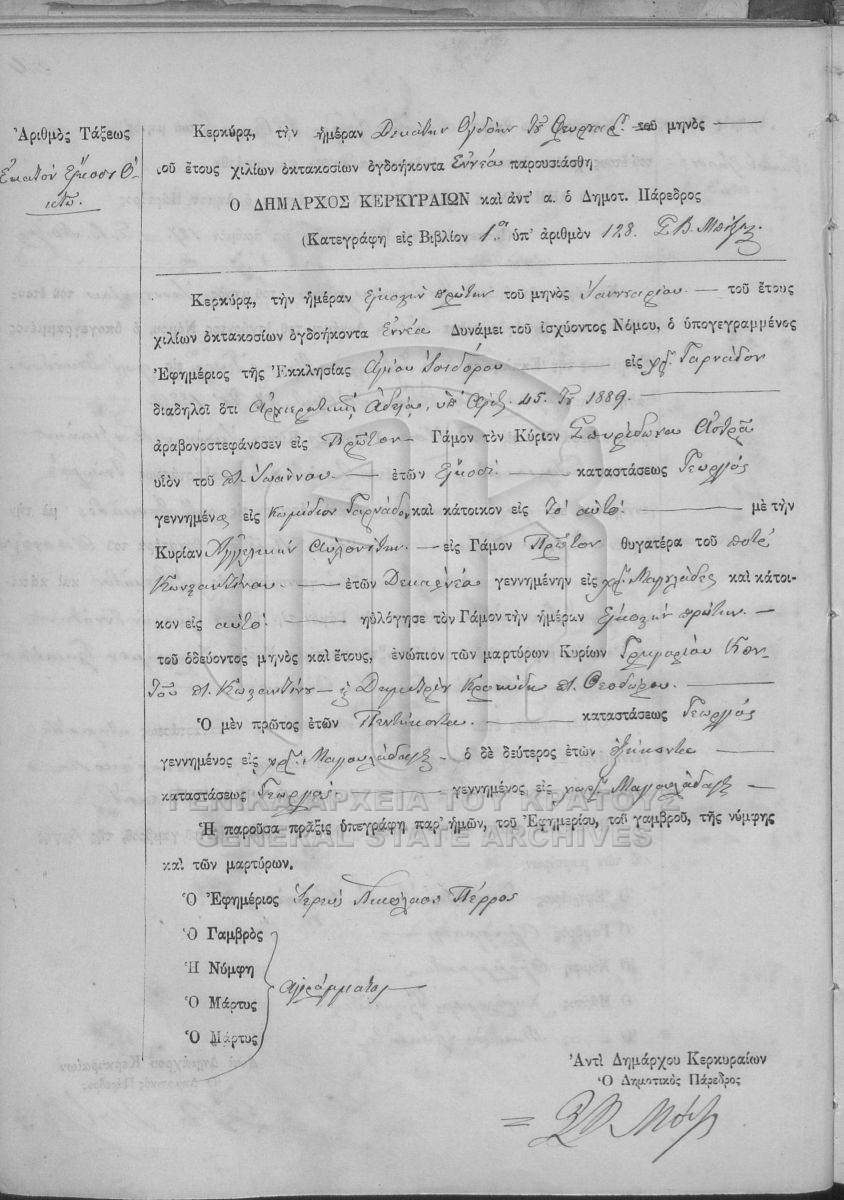 Ἀριθμὸς Τάξεως
Ἑκατὸν Εἴκοσι Ὀ-
κτώ.
Κερκύρα, τὴν ἡμέραν Δεκάτην Ὀγδόην τοῦ Φεβρουαρ. τοῦ μηνὸς
τοῦ ἔτους χιλίων ὀκτακοσίων ὀγδοήκοντα Ἐννέα παρουσιάσθη
Ο ΔΗΜΑΡΧΟΣ ΚΕΡΚΥΡΑΙΩΝ καὶ ἀντ' α. ὁ Δημοτ. Πάρεδρος
(Κατεγράφη εἰς Βιβλίον 1ον ὑπ' ἀριθμὸν 128.
Κερκύρα, τὴν ἡμέραν Εἰκοστὴν πρώτην τοῦ μηνὸς Ἰαννουαρίου. — τοῦ ἔτους
χιλίων ὀκτακοσίων ὀγδοήκοντα Ἐννέα Δυνάμει τοῦ ἰσχύοντος Νόμου, ὁ ὑπογεγραμμένος
Ἐφημέριος τῆς Ἐκκλησίας Ἁγίου Ἰσιδόρου — εἰς χῳ. Γαρνάδον
διαδηλοῖ ὅτι Ἀρχιερατικῇ Ἀδείᾳ, ὑπ' Ἀριθ. 45. τοῦ 1889. —
ἀραβονοστεφάνοσεν εἰς Πρῶτον — Γάμον τὸν Κύριον Σπυρίδωνα Ἀσπρᾶ
υἱὸν τοῦ π. Ἰωάννου. — ἐτῶν Εἴκοσι. — καταστάσεως Γεωργὸς
γεννημένος εἰς Κωμίδιον Γαρνάδον καὶ κάτοικον εἰς τὸ αὐτό. — μὲ τὴν
Κυρίαν Ἀγγελικὴν Αὐλονίτην. — εἰς Γάμον Πρῶτον θυγατέρα τοῦ ποτὲ
Κωνσταντίνου. — ἐτῶν Δεκαεννέα γεννημένην εἰς χῳ. Μαγουλάδες καὶ κάτοι-
κον εἰς αὐτό. — ηὐλόγησε τὸν Γάμον τὴν ἡμέραν Εἰκοστὴν πρώτην. —
τοῦ ὁδεύοντος μηνὸς καὶ ἔτους, ἐνώπιον τῶν μαρτύρων Κυρίων Γρηγορίου Κον-
τοῦ π. Κωνσταντίνου — καὶ Δημητρίου π. Θεοδώρου. —
Ὁ μὲν πρῶτος ἐτῶν Πεντήκοντα. — καταστάσεως Γεωργὸς
γεννημένος εἰς χῳ. Μαγουλάδες — ὁ δὲ δεύτερος ἐτῶν ἑξήκοντα —
καταστάσεως Γεωργὸς. — γεννημένος εἰς χωρ. Μαγουλάδες —
ΓΕΝΙΚΑ ΑΡΧΕΙΑ ΤΟΥ ΚΡΑΤΟΥΣ
GENERAL STATE ARCHIVES
Ἡ παροῦσα πρᾶξις ὑπεγράφη παρ' ἡμῶν, τοῦ Ἐφημερίου, τοῦ γαμβροῦ, τῆς νύμφης
καὶ τῶν μαρτύρων.
Ὁ Ἐφημέριος Ἱερεὺς Νικόλαος Πέρρος
Ὁ Γαμβρὸς
Ἡ Νύμφη
ἀγράμματοι
Ὁ Μάρτυς
Ὁ Μάρτυς
Ἀντὶ Δημάρχου Κερκυραίων
Ὁ Δημοτικὸς Πάρεδρος